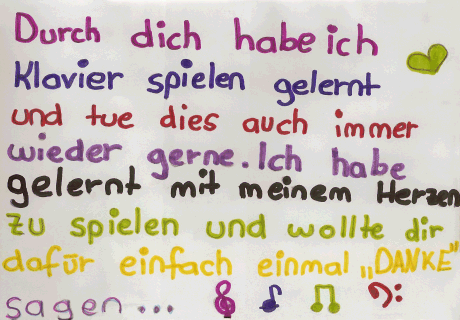 Durch dich habe ich
Klavier spielen gelernt
und tue dies auch immer
wieder gerne. Ich habe
gelernt mit meinem Herzen
zu spielen und wollte dir
dafür einfach einmal „DANKE"
sagen...